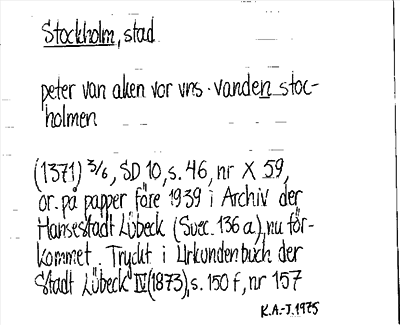 Stockholm, stad
peter van aken vor vns. vanden stoc-
holmen
(1371) 3/6, SD 10, s. 46, nr X 59,
or. på papper före 1939 i Archiv der
Hansestadt Lübeck (Suec. 136 a), nu för-
kommet. Tryckt i Urkundenbuch der
Stadt Lübeck IV (1873), s. 150 f, nr 157
K.A.-J. 1975